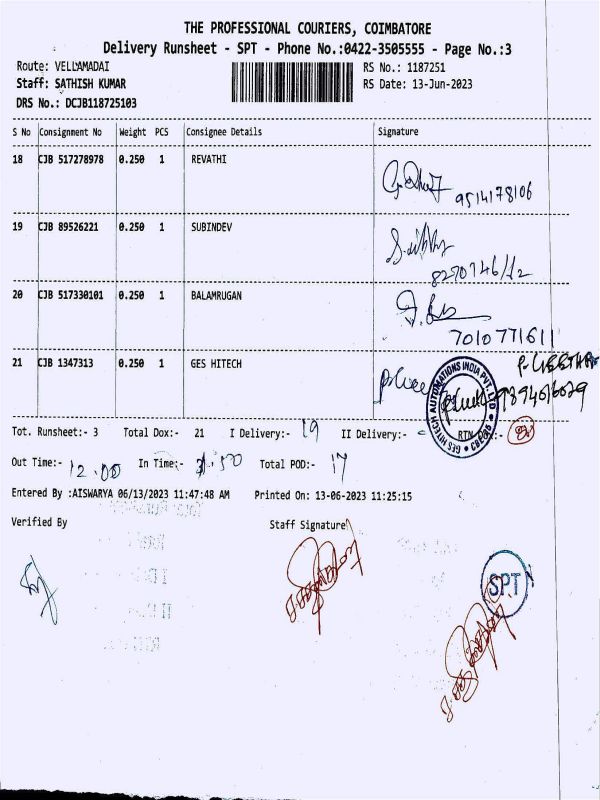 THE PROFESSIONAL COURIERS, COIMBATORE
Delivery Runsheet - SPT - Phone No.:0422-3505555 - Page No.:3
Route: VELLAMADAI RS No.: 1187251
Staff: SATHISH KUMAR RS Date: 13-Jun-2023
DRS No.: DCJB118725103
S No Consignment No Weight PCS Consignee Details Signature
18 CJB 517278978 0.250 1 REVATHI
9514178106
19 CJB 89526221 0.250 1 SUBINDEV
20 CJB 517330101 0.250 1 BALAMRUGAN
7010771611
21 CJB 1347313 0.250 1 GES HITECH
GES HITECH AUTOMATIONS INDIA PVT. LTD
Tot. Runsheet:- 3 Total Dox:- 21 I Delivery:- 19 II Delivery:- RTN
Out Time:- 12.00 In Time:- Total POD:- 17
Entered By :AISWARYA 06/13/2023 11:47:48 AM Printed On: 13-06-2023 11:25:15
Verified By Staff Signature
SPT